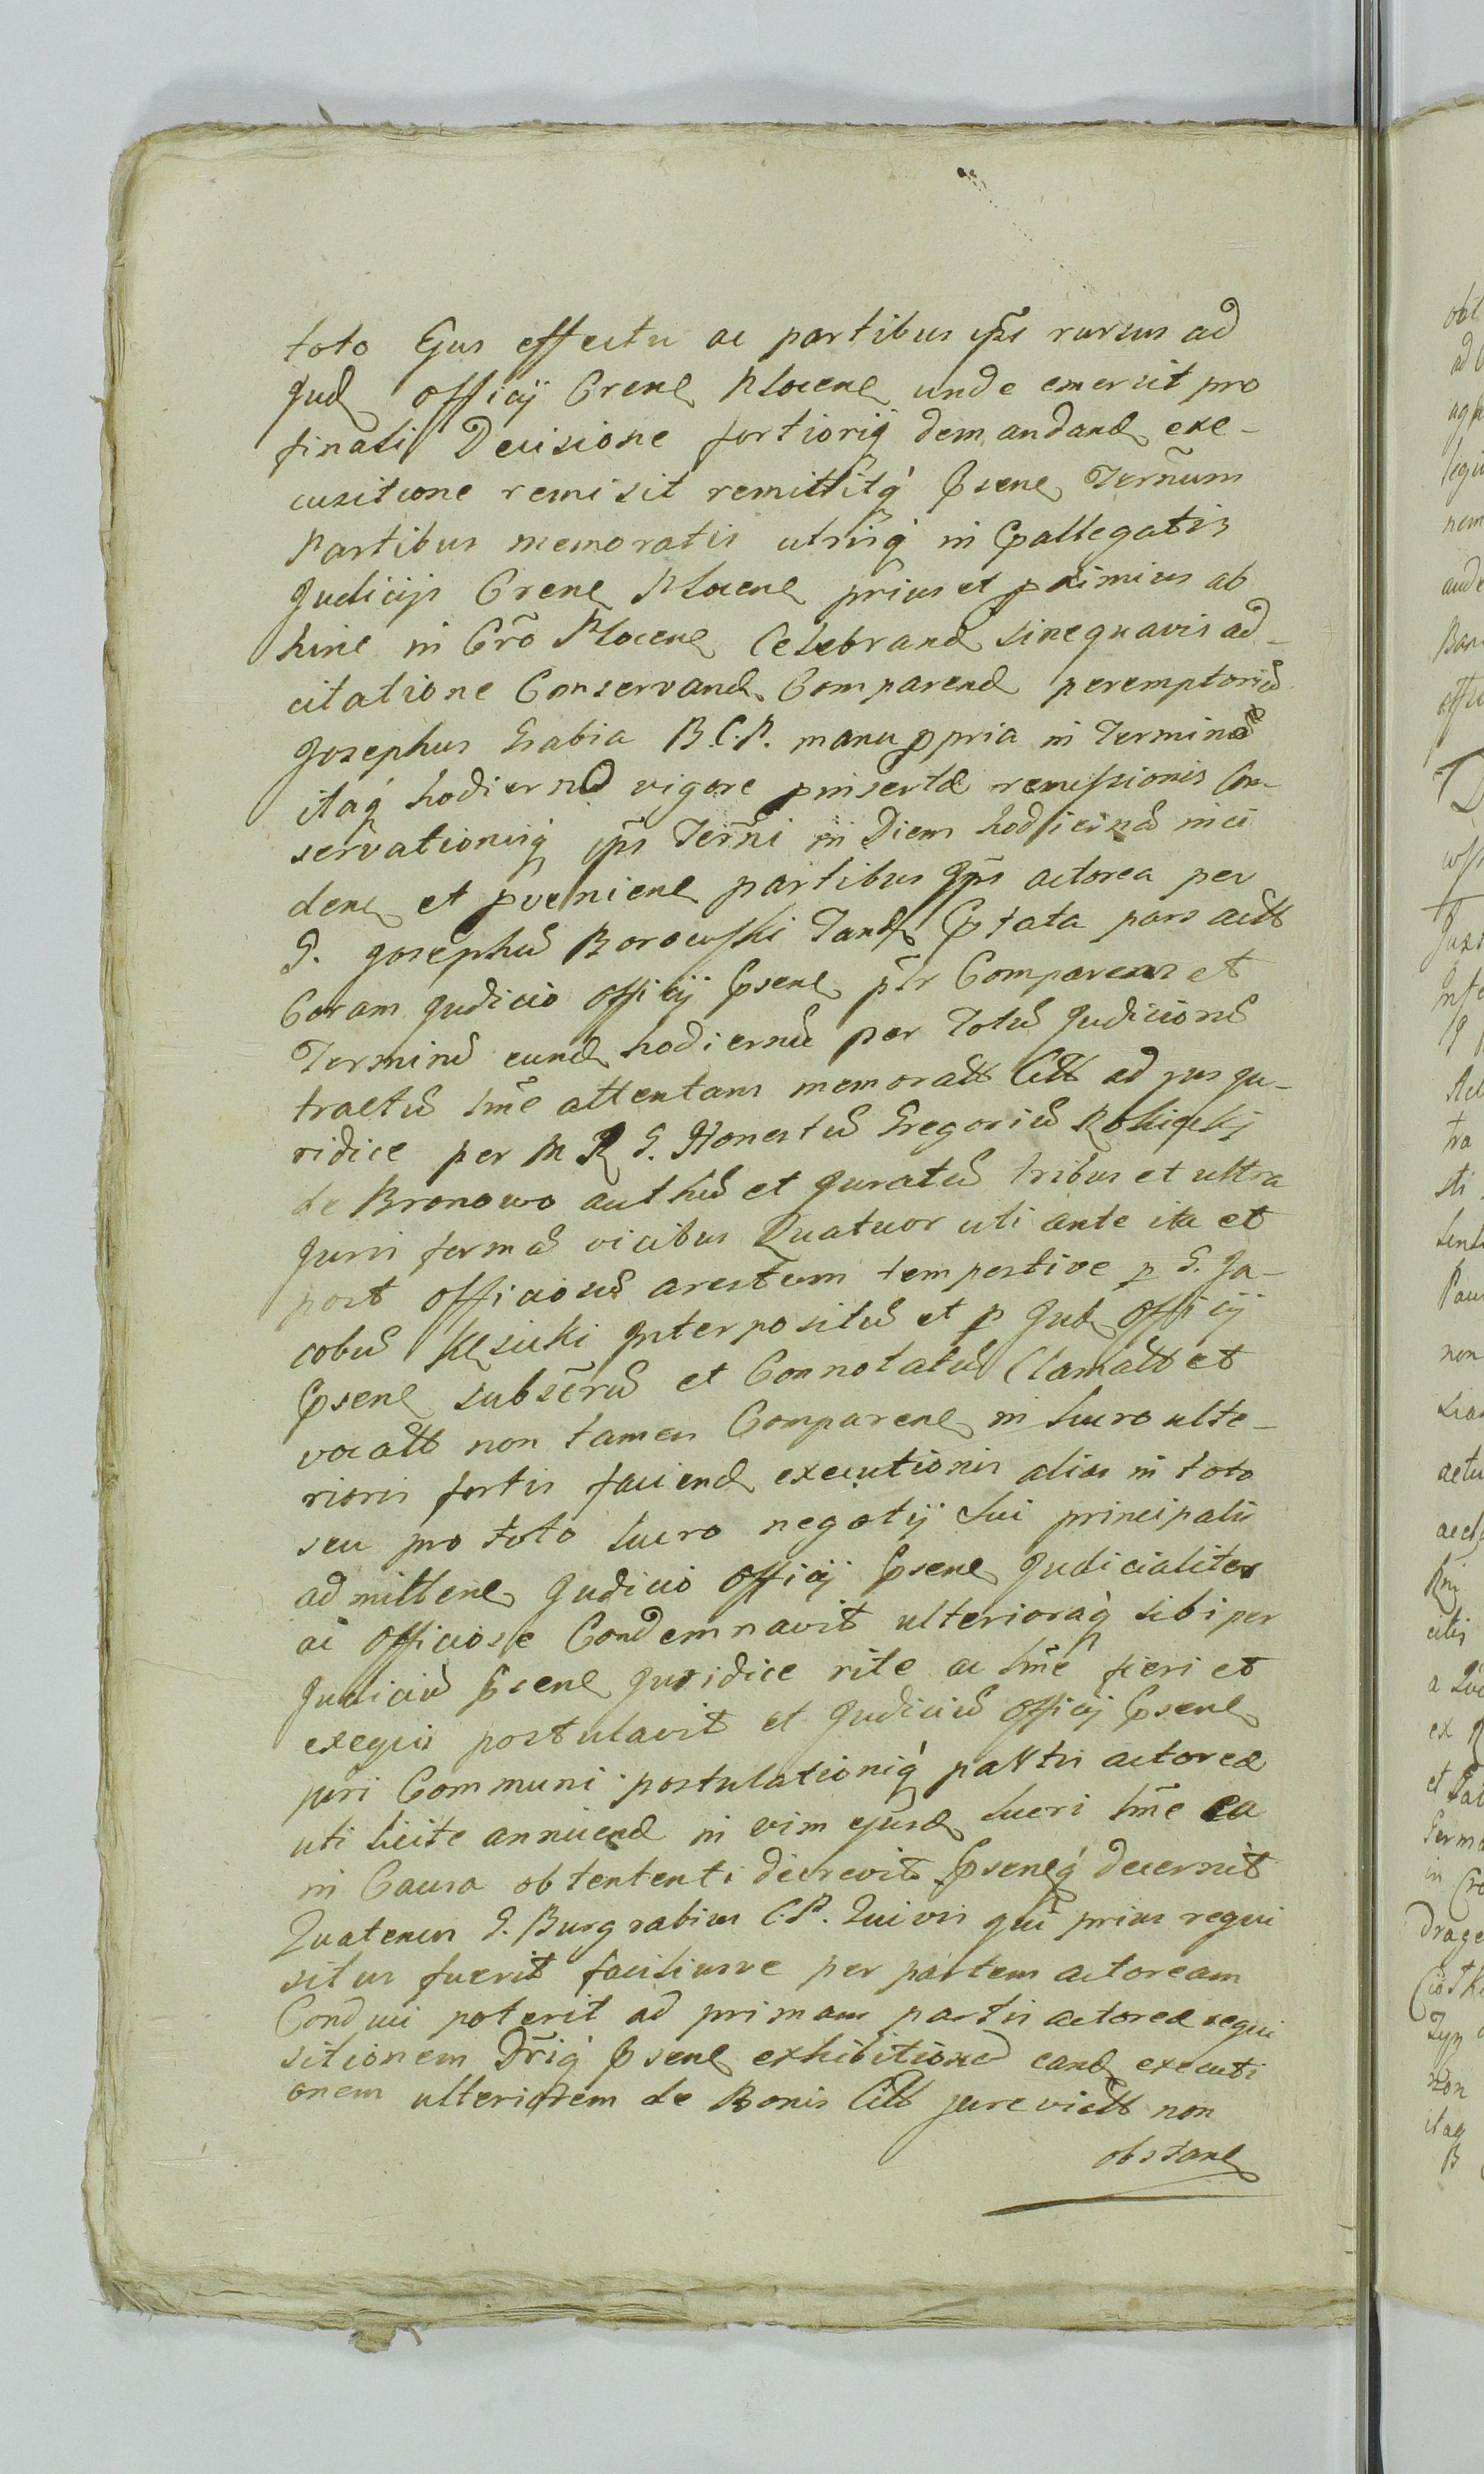 toto Ejus effectu ac partibus ip̃s rursus ad
Jud Officij Crene Plocene unde emersit pro
finali Decisione fortiorisq demandand exe-
cusitione remisit remittitq́ Psene Ter̃num
Partibus memoratis utrisq́ in Pallegatis
Judicijs Crene Plocene prius et pximius ab
hinc in Cr̃o Plocene Celebrand sinequavis ad-
citatione Conservand Comparend peremptoriu
Josephus Grabia B.C.P. manu ppria in Termino
itaq́ hodierno vigore pinsertæ remissionis Con-
servationisq ip̃s Ter̃ni in Diem hodiernã inci
dene et pveniene partibus Ip̃s actorea per
G. Josephũ Borowski Tand Ptata pars actt
Coram Judicio Officij Psene p̃lr Comparens et
Terminũ eund hodiernũ per Totũ Judicionũ
tractũ ltm̃e attentans memoratt Citt ad jus Ju-
ridice per M R G. Honestũ Gregoriũ Rokicki
de Bronowo authũ et Juratũ tribus et ultra
Juris formã vicibus Quatuor uti ante ita et
post Officiosũ arestum tempestive p G. Ja-
cobũ Kęsicki Interpositũ et p Jud Officij
Psene subscr̃ũ et Connotatũ Clamatt et
vocatt non tamen Comparene in lucro ulte-
rioris fortis faciend executionis alias in toto
seu pro toto lucro negotij sui principalis
admittene Judicio Officij Psene Judicialiter
ac Officiose Condemnavit ulterioraq́ sibi per
Judiciũ Psene Juridice rite ac ltm̃e fieri et
exequi postulavit et Judiciũ Officij Psene
juri Communi postulationiq́ partis actoreæ
uti licite annuend in vim ejusd lucri ltm̃e ea
in Causa obtententi decrevit Pseneq́ decernit
Quatenus G. Burgrabius C.P. Quivis qui prius requi
situs fuerit faciliusve per partem actoream
Conduci poterit ad primam partis actoreæ requi
sitionem Dr̃iq́ Psene exhibitionẽ eand executi
onem ulteriorem de Bonis Citt jure victt non
obstane